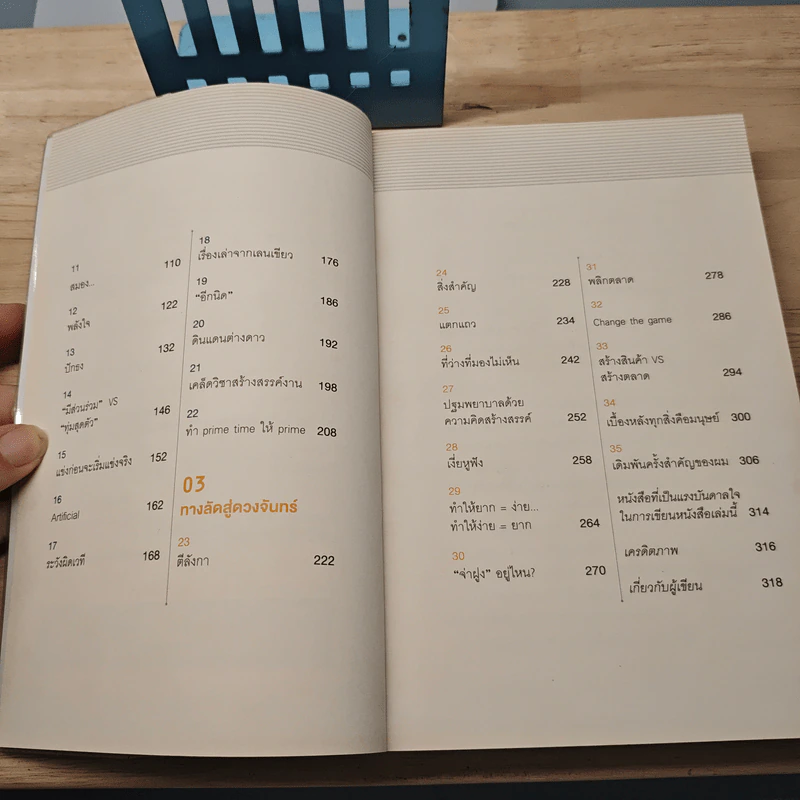 11
สมอง... 110
12
พลังใจ 122
13
ปักธง 132
14
"มีส่วนร่วม" VS
"ทุ่มสุดตัว" 146
15
แข่งก่อนจะเริ่มแข่งจริง 152
16
Artificial 162
17
ระวังผิดเวที 168
18
เรื่องเล่าจากเลนเขียว 176
19
"อีกนิด" 186
20
ดินแดนต่างดาว 192
21
เคล็ดวิชาสร้างสรรค์งาน 198
22
ทำ prime time ให้ prime 208
03
ทางลัดสู่ดวงจันทร์
23
ตีลังกา 222
24
สิ่งสำคัญ 228
25
แตกแถว 234
26
ที่ว่างที่มองไม่เห็น 242
27
ปฐมพยาบาลด้วย
ความคิดสร้างสรรค์ 252
28
เงี่ยหูฟัง 258
29
ทำให้ยาก = ง่าย...
ทำให้ง่าย = ยาก 264
30
"จ่าฝูง" อยู่ไหน? 270
31
พลิกตลาด 278
32
Change the game 286
33
สร้างสินค้า VS
สร้างตลาด 294
34
เบื้องหลังทุกสิ่งคือมนุษย์ 300
35
เดิมพันครั้งสำคัญของผม 306
หนังสือที่เป็นแรงบันดาลใจ
ในการเขียนหนังสือเล่มนี้ 314
เครดิตภาพ 316
เกี่ยวกับผู้เขียน 318